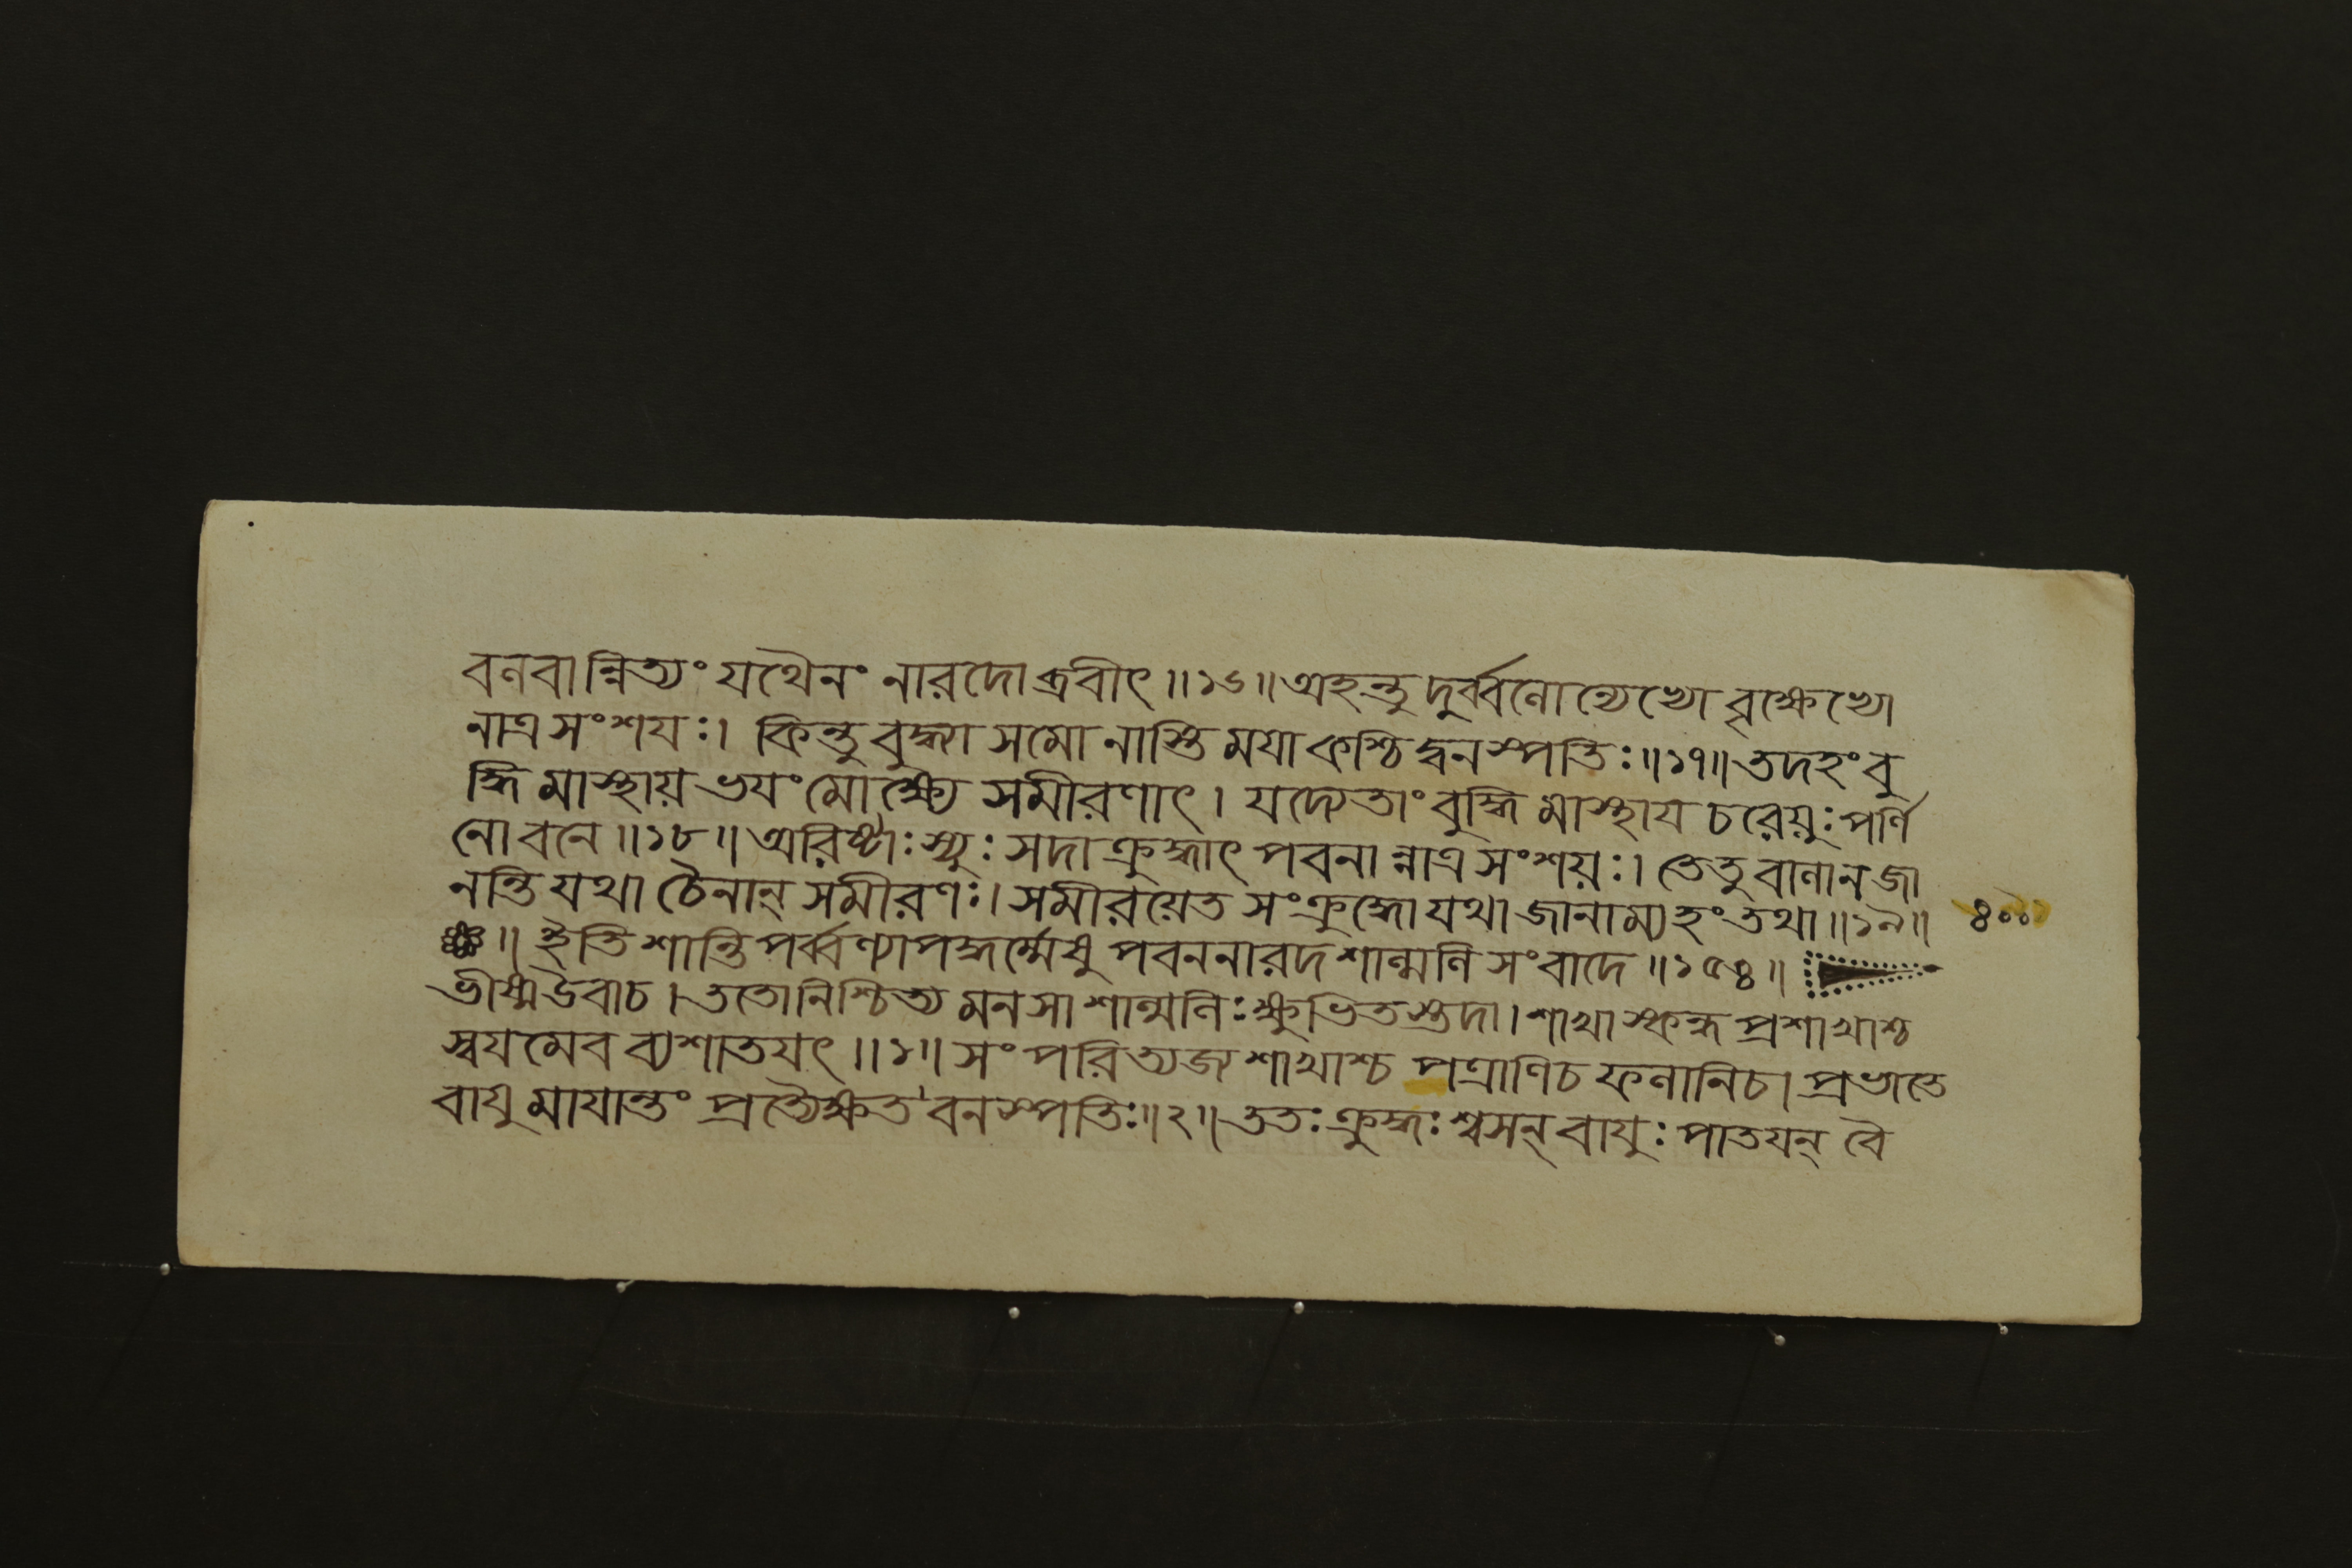 বলবান্নিত্যং যথৈনং নারদোব্রবীৎ॥১৬॥অহন্তু দুর্ব্বলোন্যেভ্যো বৃক্ষেভ্যো
নাত্রসংশযঃ। কিন্তু বুদ্ধ্যা সমো নাস্তি ময়া কশ্চিদ্বনস্পতিঃ॥১৭॥তদহং বু
দ্ধি মাস্থায় ভযং মোক্ষ্যে সমীরণাৎ। যদ্যেতাং বুদ্ধি মাস্থায চরেয়ুঃ পর্ণি
নো বনে॥১৮॥অরিষ্টাঃ স্যুঃ সদা ক্রুদ্ধাৎ পবনা ন্নাত্র সংশয়ঃ। তেতু বালা ন জা
নন্তি যথা চৈনান্ সমীরণঃ। সমীরয়েত সংক্রুদ্ধো যথা জানাম্যহং তথা॥১৯॥ ৪০০
॥ ইতি শান্তি পর্ব্বণ্যাপদ্ধর্ম্মেষু পবননারদশাল্মলি সংবাদে॥১৫৪॥
ভীষ্মউবাচ। ততোনিশ্চিত্য মনসা শাল্মলিঃ ক্ষুভিতস্তদা। শাখা স্কন্ধ প্রশাখাশ্চ
স্বযমেব ব্যশাতযৎ॥১॥ সংপরিত্যজ্য শাখাশ্চ পত্রাণিচ ফলানিচ। প্রভাতে
বাযু মাযান্তং প্রত্যৈক্ষত বনস্পতিঃ॥২॥ততঃ ক্রুদ্ধঃ শ্বসন্ বাযুঃ পাতযন্ বৈ